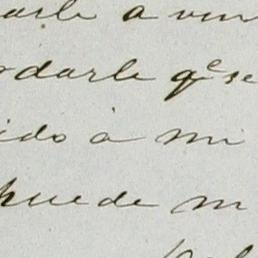 arle a ven
darle qᵉ se
ido a mi
puede m